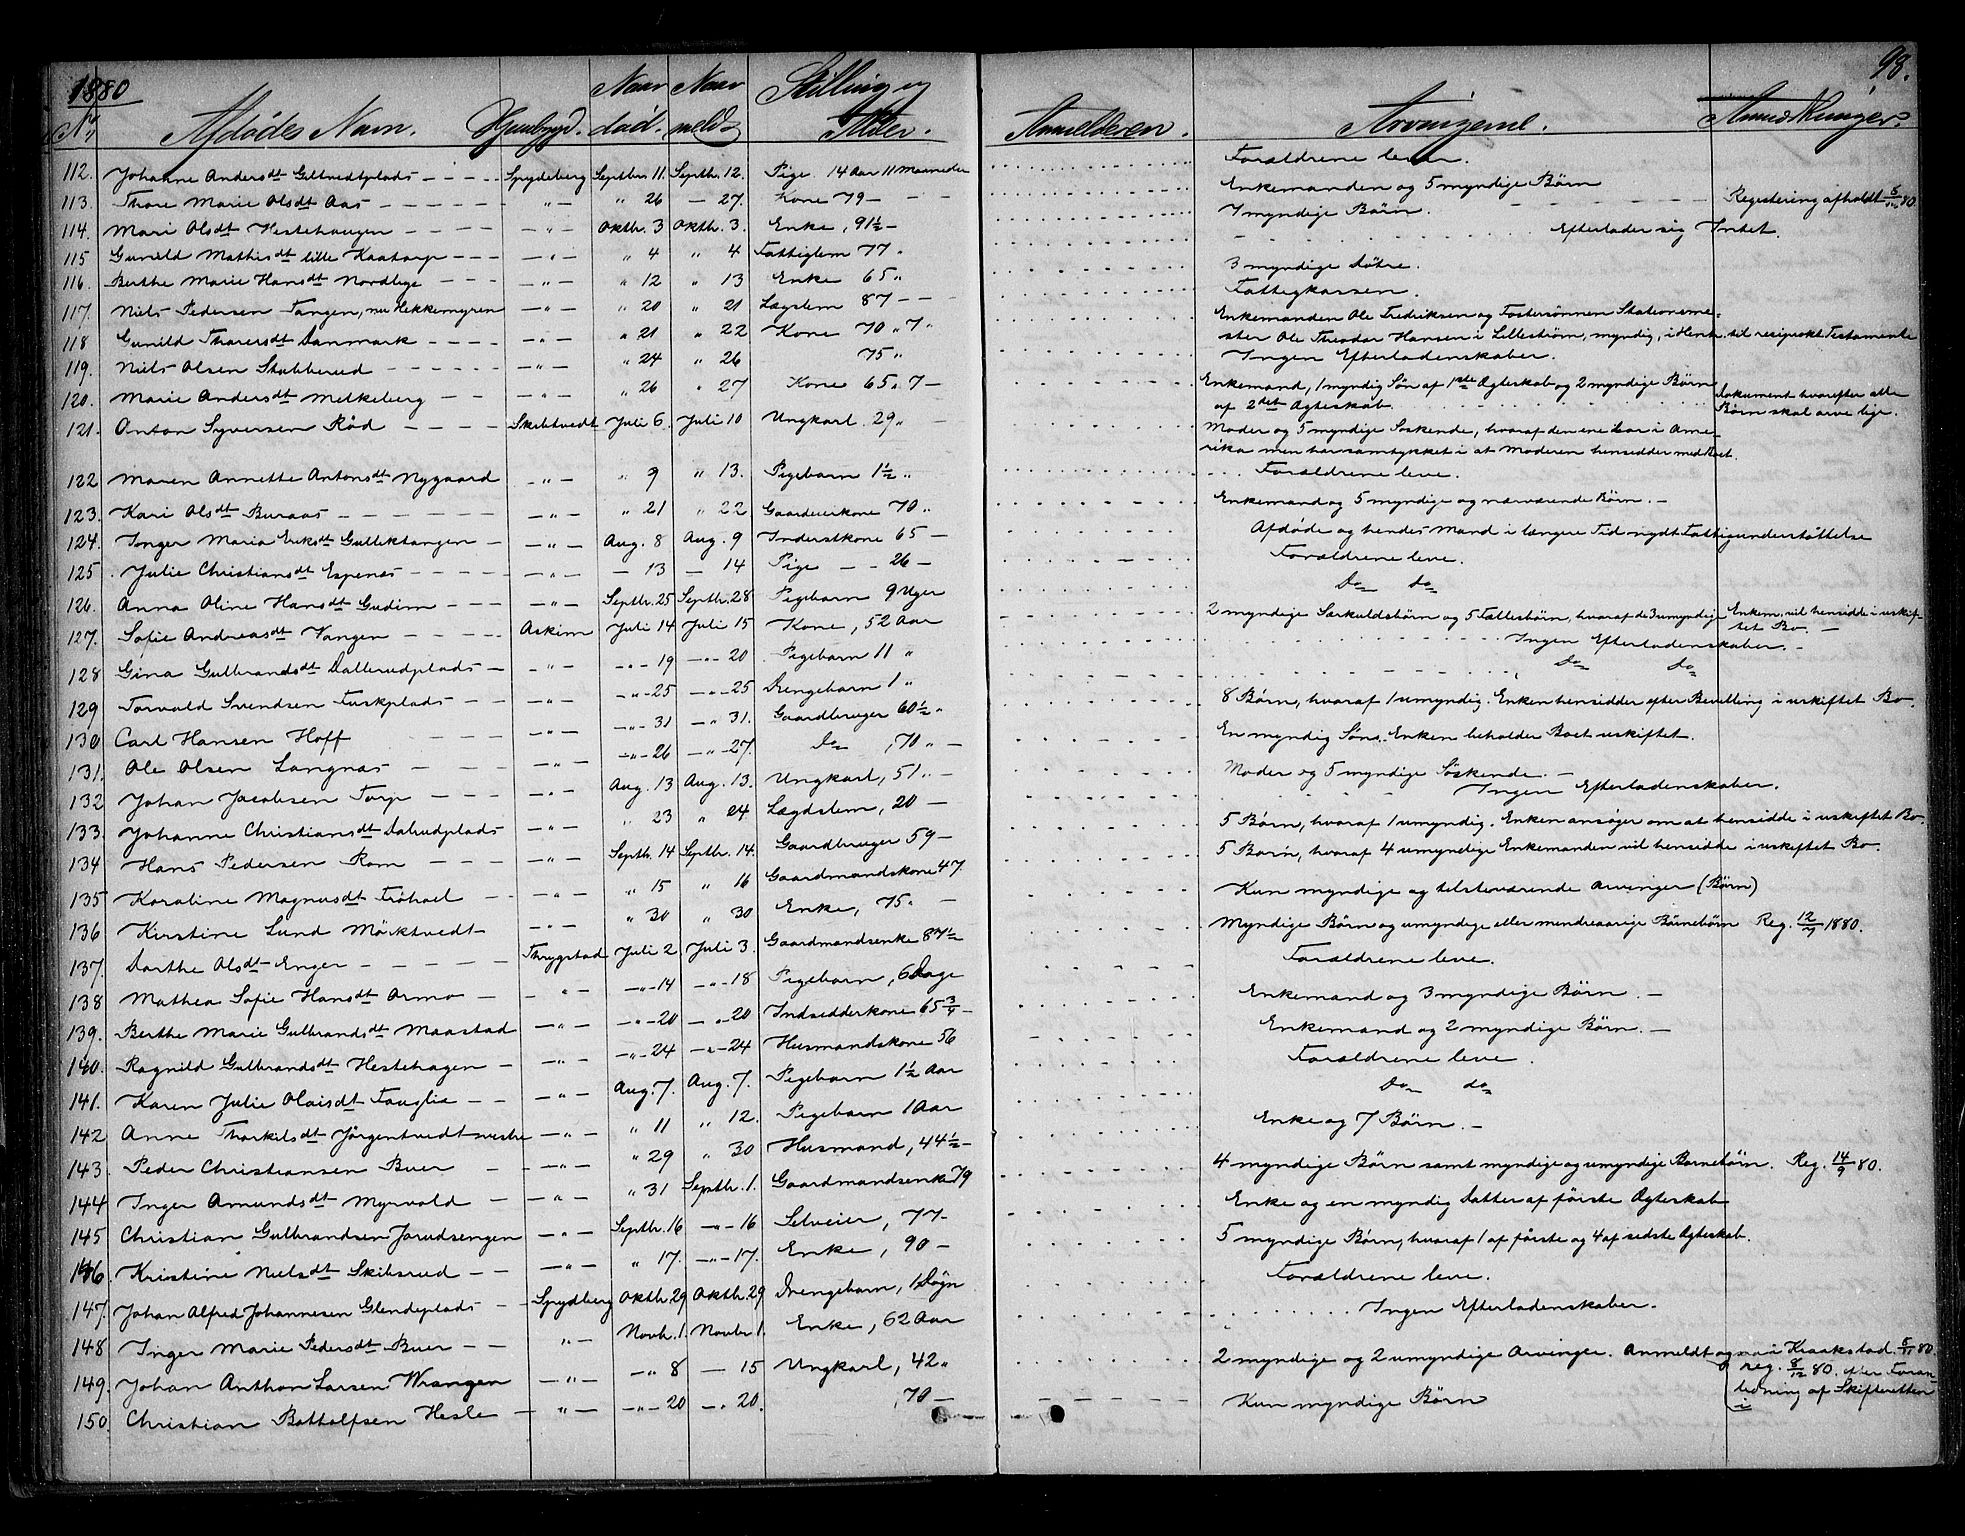 1880
98.
No Afdødes Navn. Hjembygd. Naar død. Naar meldt Stilling og Alder. Anmelderen. Arvingerne. Anmærkninger.
112. Johanne Andersdt Giltvedtplads — Spydeberg Septbr 11. Septbr. 12. Pige. 14 Aar 11 Maaneder Forældrene lever.
113. Thore Marie Olsdt Aas — " — " 26 — 27. Kone 79 — Enkemanden og 5 myndige Børn — Registering afholdt 80.
114. Mari Olsdt Hestehaugen — " — Oktbr. 3 Oktbr. 3. Enke, 91½ — 7 myndige Børn.
115 Gunild Mathisdt lille Kaatorp — " — " 4 " 4 Fattiglem 77 " Efterlader sig Intet.
116. Berthe Marie Hansdt Nordlige — " — " 12 " 13 Enke 65 " 3 myndige Døtre.
117. Niels Pedersen Tangen, nu Hekkemyren — " — " 20 " 21 Lægslem 87 — Fattigkassen.
118 Gunild Tharersdt Danmark — " — " 21 " 22 Kone 70 " 7 " Enkemanden Ole Fredriksen og Fostersønnen Stationsme-
ster Ole Theodor Hansen i Lillestrøm, myndig, i Henh. til resiprokt Testamente
119. Niels Olsen Stubberud — " — " 24 " 26 75 " Ingen Efterladenskaber.
120. Marie Andersdt Melkeberg — " — " 26 " 27 Kone 65 " 7 — Enkemand, 1 myndig Søn af 1ste Ægteskab og 2 myndige Børn
af 2det Ægteskab. Dokument hvorefter alle
Børn skal arve lige.
121. Anton Syversen Rød — Skibtvedt Juli 6. Juli 10 Ungkarl. 29 " — Moder og 5 myndige Søskende, hvoraf den ene bor i Ame-
rika men har samtykket i at Moderen hensidder med Boet.
122 Maren Annette Antonsdt Nygaard — " — " 9 " 13. Pigebarn 1½ " Forældrene leve.
123. Kari Olsdt Buraas — " — " 21 " 22 Gaardeierkone 70 " Enkemand og 5 myndige og nærværende Børn. —
124. Inger Maria Eriksdt Gullektangen — " — Aug. 8 Aug. 9 Inderstkone 65 — Afdøde og hendes Mand i længere Tid nydt Fattigunderstøttelse
125 Julie Christiansdt Espenes — " — — 13 — 14 Pige — 26 — Forældrene leve.
126. Anna Oline Hansdt Gudim — " — Septbr. 25 Septbr. 28 Pigebarn 9 Uger Do do
127. Sofie Andreasdt Vangen — Askim Juli 14 Juli 15 Kone, 52 Aar 2 myndige Særkuldsbørn og 5 Fællesbørn, hvoraf de 3 umyndige Enkem. vil hensidde i uskif-
tet Bo. —
128 Gina Gulbrandsdt Dallerudplads — " — — " — 19 — " — 20 Pigebarn 11 " Ingen Efterladenskaber. —
129 Torvald Svendsen Tuskplads — " — — " — 25 — " — 25 Drengebarn 1 " Do do
130 Carl Hansen Hoff — " — — " — 31 — " 31. Gaardbruger 60½ " 8 Børn, hvoraf 1 umyndig. Enken hensidder efter Bevilling i uskiftet Bo.
131. Ole Olsen Langnæs — " — — " — 26 — " — 27. Do, 70 " — En myndig Søn. Enken beholder Boet uskiftet.
132 Johan Jacobsen Torp — " — Aug. 13 Aug. 13. Ungkarl, 51 " — Moder og 5 myndige Søskende. —
133. Johanne Christiansdt Dalrudplads — " — " 23 " 24 Lægdslem, 20 — Ingen Efterladenskaber.
134 Hans Pedersen Rom — " — Septbr. 14 Septbr. 14. Gaardbruger 59 — 5 Børn, hvoraf 1 umyndig. Enken ansøger om at hensidde i uskiftet Bo.
135 Karoline Magnusdt Frøhael — " — " 15 " 16 Gaardmandskone 47 5 Børn, hvoraf 4 umyndige Enkemanden vil hensidde i uskiftet Bo.
136 Kirstine Lund Mörktvedt — " — " 30 " 30 Enke, 75 " — Kun myndige og tilstedværende Arvinger (Børn)
137. Dorthe Olsdt Enger — Thrygstad Juli 2 Juli 3. Gaardmandsenke 87½ Myndige Børn og umyndige eller mindreaarige Børnebørn Reg. 12/7 1880.
138 Mathea Sofie Hansdt Armo — " — — " — 14 — " — 18 Pigebarn, 6 Dage Forældrene leve.
139. Berthe Marie Gulbrandsdt Maastad — " — — " — 20 — " — 20 Indsidderkone 65 ¾ — Enkemand og 3 myndige Børn. —
140. Ragnild Gulbrandsdt Hestehagen — " — — " — 24 — " — 24 Husmandskone 56 Enkemand og 2 myndige Børn. —
141. Karen Julie Olaisdt Fauglie — " — Aug. 7. Aug. 7. Pigebarn 1½ Aar Forældrene leve.
142 Anne Thorkilsdt Jörgentvedt vestre — " — " 11 " 12. Pigebarn 1 Aar Do do
143. Peder Christiansen Buer — " — " 29 " 30 Husmand, 44½ — Enke og 7 Børn. —
144 Inger Amundsdt Myrvold — " — " 31 Septbr. 1. Gaardmandsenke 79 4 myndige Børn samt myndige og umyndige Barnebørn. Reg. 14/9 80.
145 Christian Gulbrandsen Jarudsengen — " — Septbr. 16 — " — 16 Selveier, 77 — Enke og en myndig Datter af første Ægteskab
146 Kristine Nielsdt Skibsrud — " — " 17. — " — 17. Enke, 90 — 5 myndige Børn, hvoraf 1 af første og 4 af sidste Ægteskab.
147. Johan Alfred Johannesen Glendeplads — Spydberg Oktbr. 29 Oktbr. 29 Drengebarn, 1 Døgn Forældrene leve.
148 Inger Marie Pedersdt Buer — " — Novbr. 1. Novbr. 1. Enke, 62 Aar Ingen Efterladenskaber.
149. Johan Anthon Larsen Wrangen — " — — " 8 — 15 Ungkarl, 42 " 2 myndige og 2 umyndige Arvinger. Anmeldt ogsaa i Kraakstad. 5/11 80.
reg. 8/12 80. efter Foran-
ledning af Skifteretten
i
150. Christian Bottolfsen Hesle — " — — " — 20 — " 20. , 70 — Kun myndige Børn